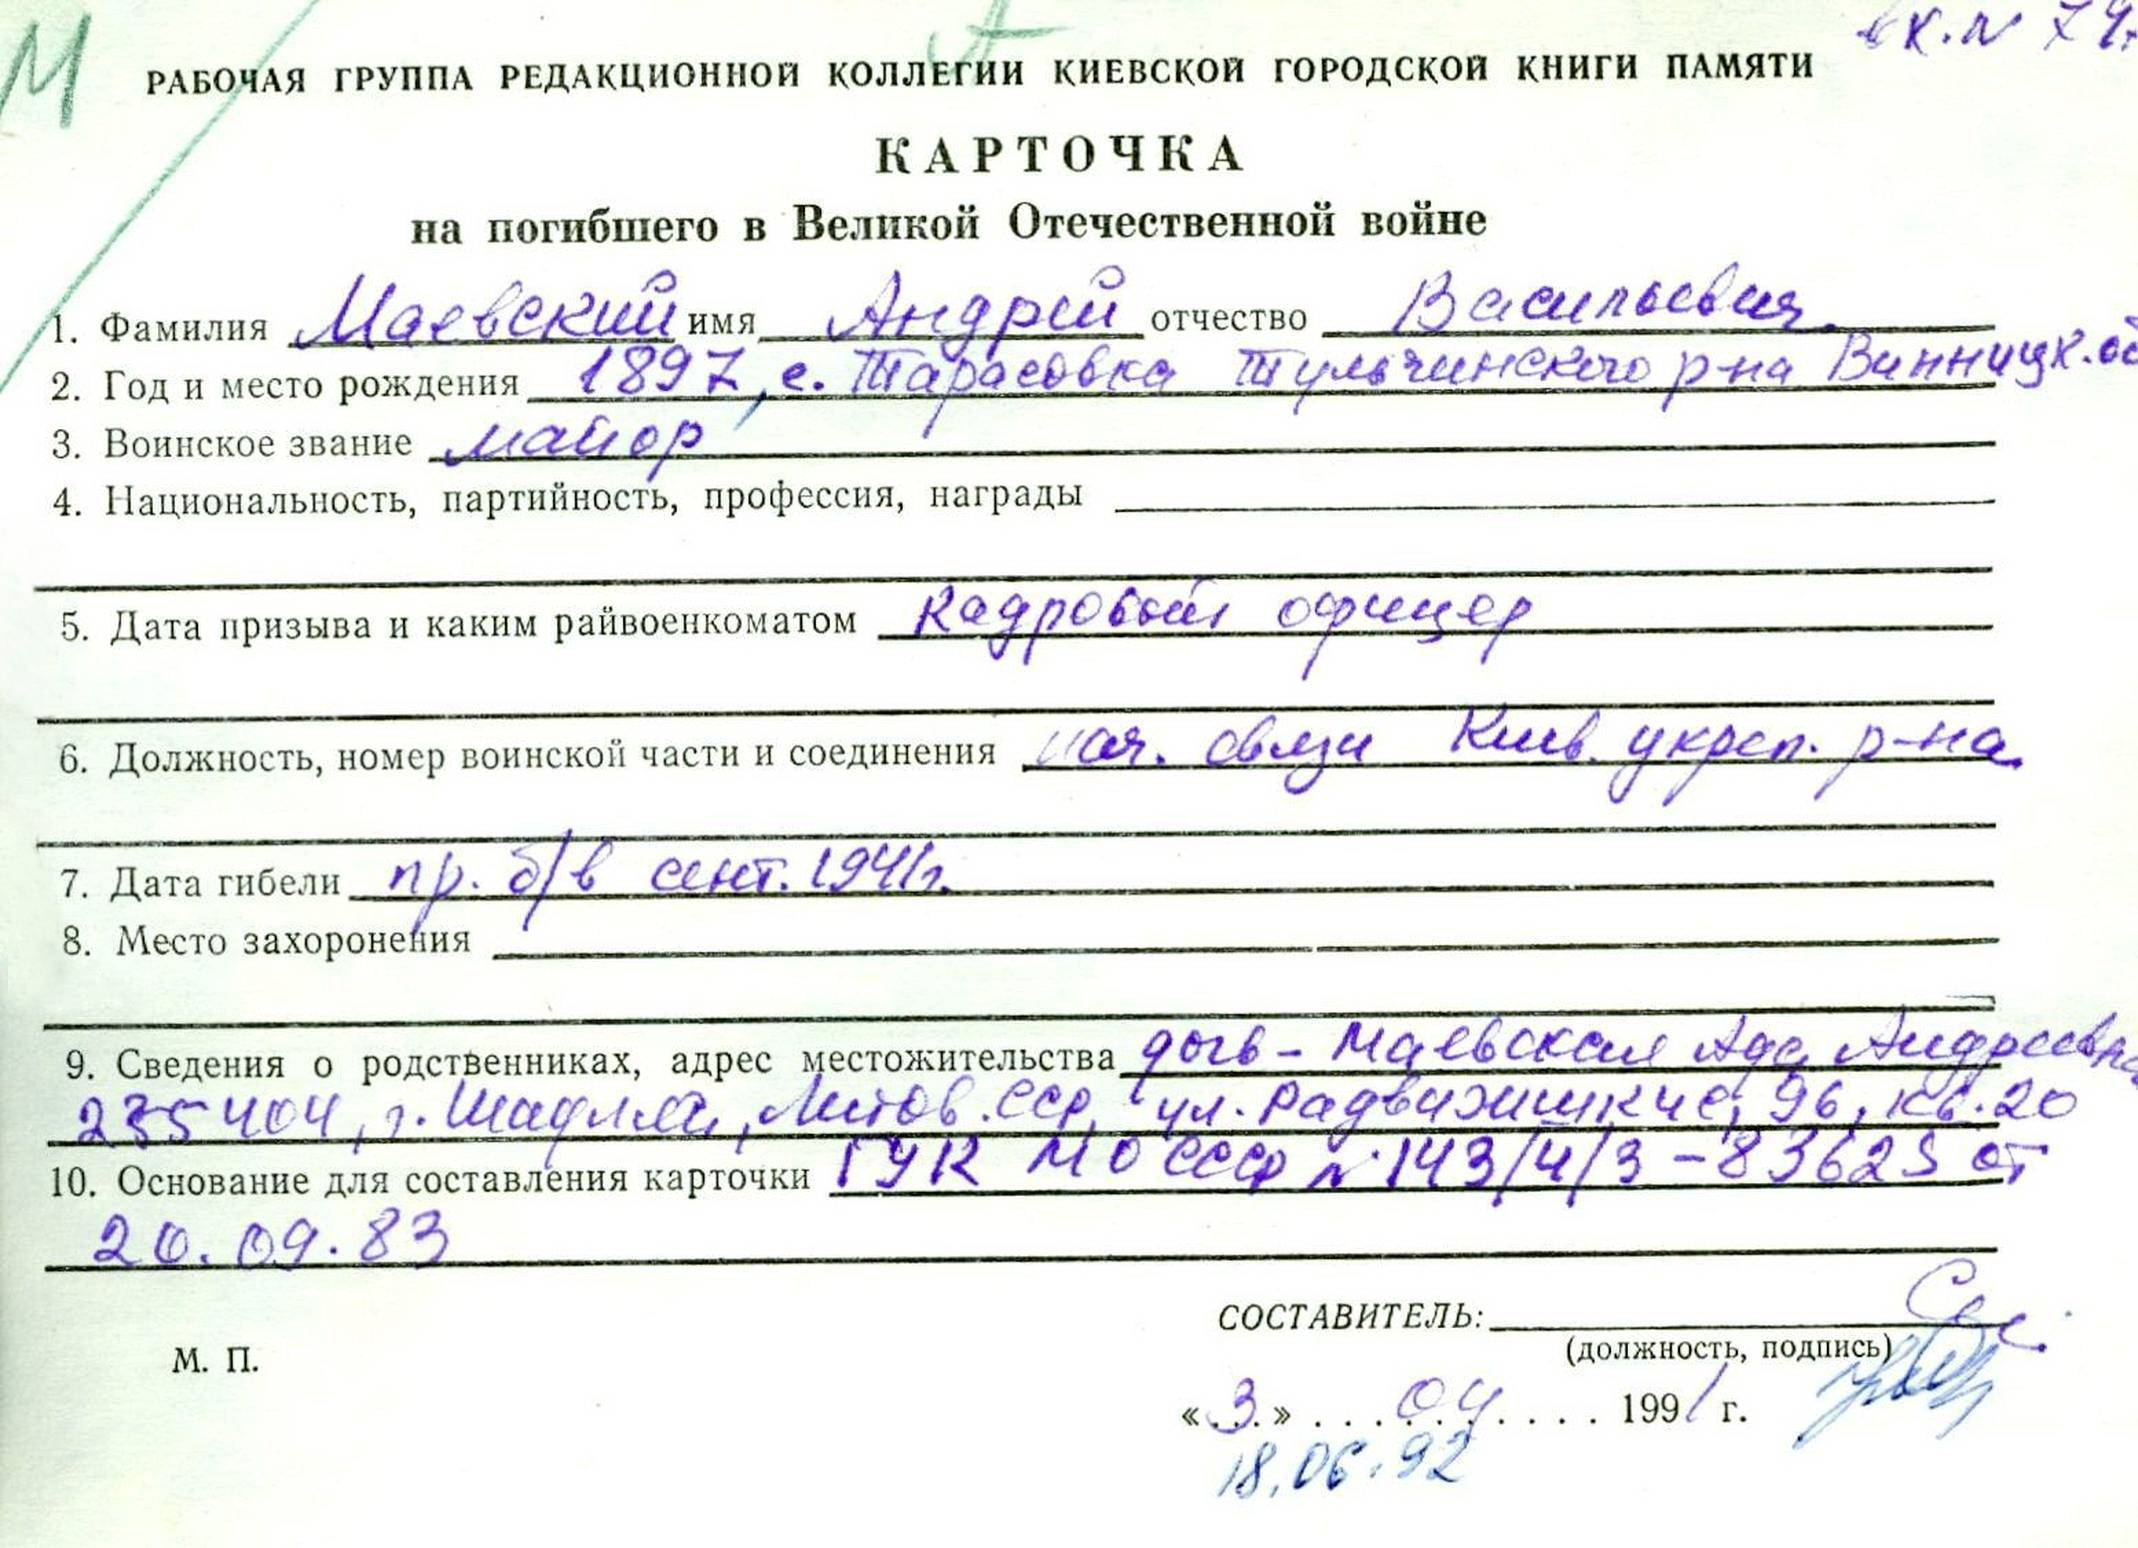 М
вх. № 74
РАБОЧАЯ ГРУППА РЕДАКЦИОННОЙ КОЛЛЕГИИ КИЕВСКОЙ ГОРОДСКОЙ КНИГИ ПАМЯТИ
КАРТОЧКА
на погибшего в Великой Отечественной войне
1. Фамилия Маевский имя Андрей отчество Васильевич
2. Год и место рождения 1897, с. Тарасовка Тульчинского р-на Винницк. об
3. Воинское звание майор
4. Национальность, партийность, профессия, награды
5. Дата призыва и каким райвоенкоматом Кадровый офицер
6. Должность, номер воинской части и соединения нач. связи Киев. укреп. р-на
7. Дата гибели пр. б/в сент. 1941г.
8. Место захоронения
9. Сведения о родственниках, адрес местожительства дочь - Маевская Ада Андреевна
235404, г. Шауляй, Литов. ССР, ул. Радвилишкис, 96, кв. 20
10. Основание для составления карточки ГУК МО СССР № 143/4/3-83625 от
20.09.83
СОСТАВИТЕЛЬ:
(должность, подпись)
М. П.
«3» 04 1991 г.
18.06.92